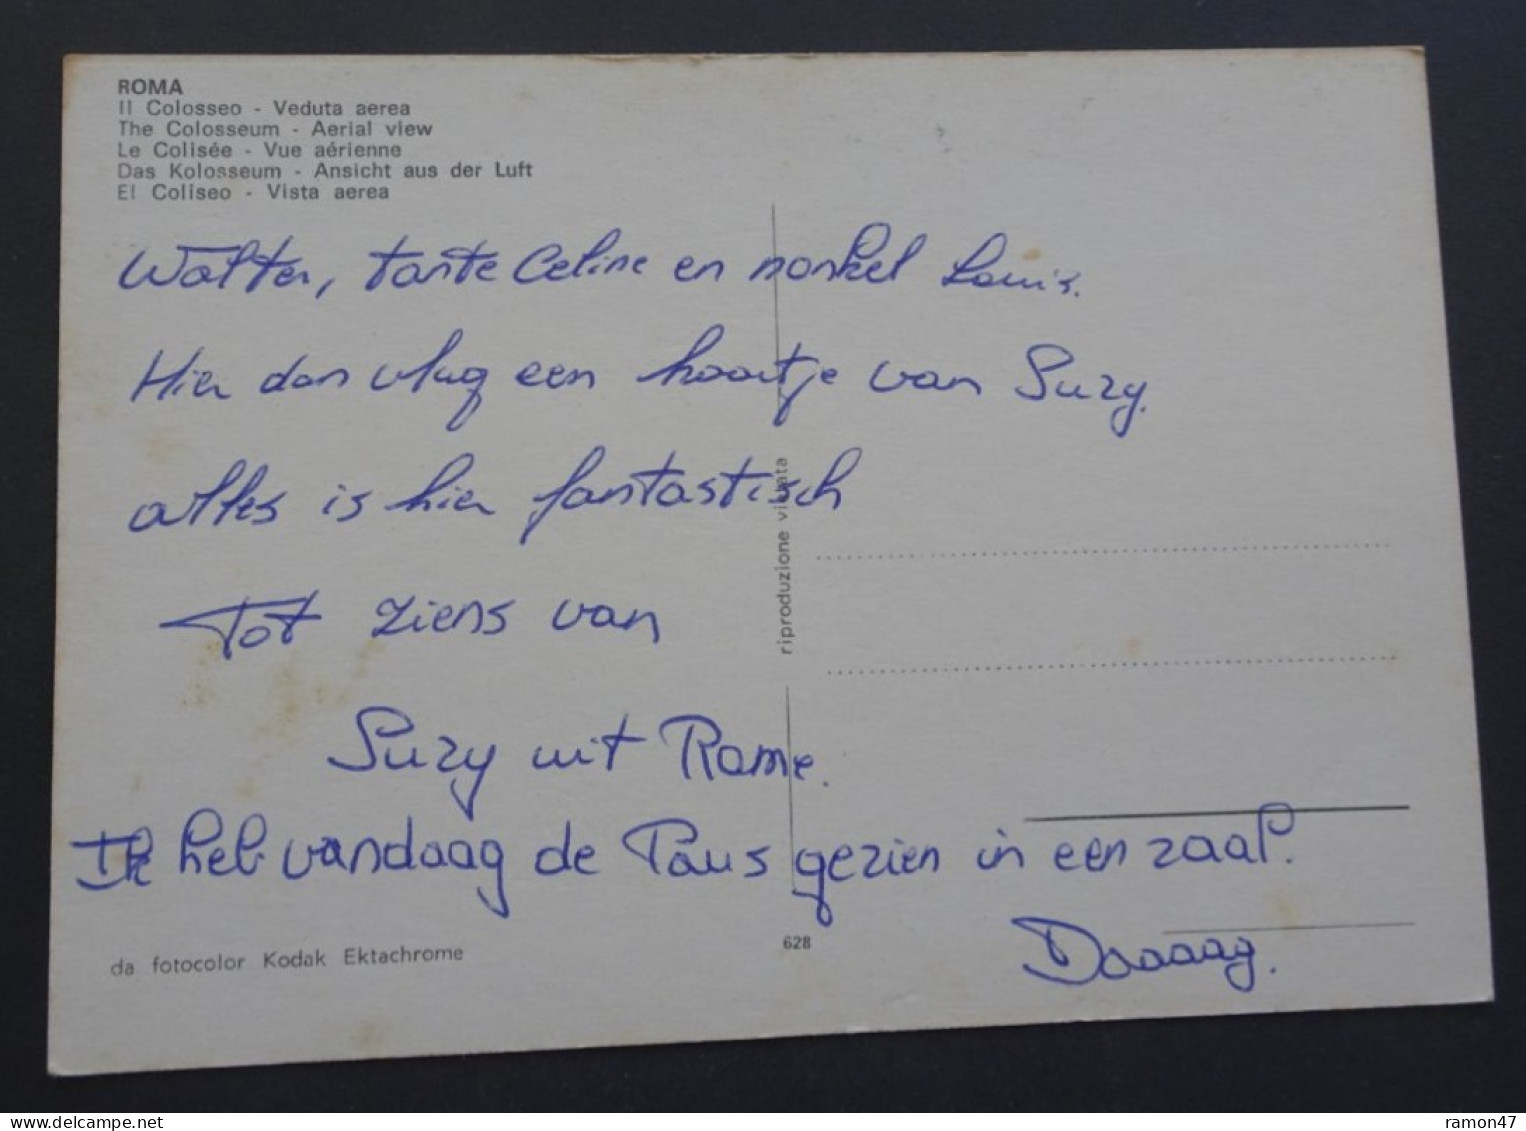 ROMA
Il Colosseo - Veduta aerea
The Colosseum - Aerial view
Le Colisée - Vue aérienne
Das Kolosseum - Ansicht aus der Luft
El Coliseo - Vista aerea
Walter, tante Celine en nonkel Louis.
Hier dan vlug een kaartje van Suzy.
alles is hier fantastisch
Tot ziens van
Suzy uit Rome.
Ik heb vandaag de Paus gezien in een zaal.
Daaaag.
riproduzione vietata
da fotocolor Kodak Ektachrome
628
delcampe.net
ramon47